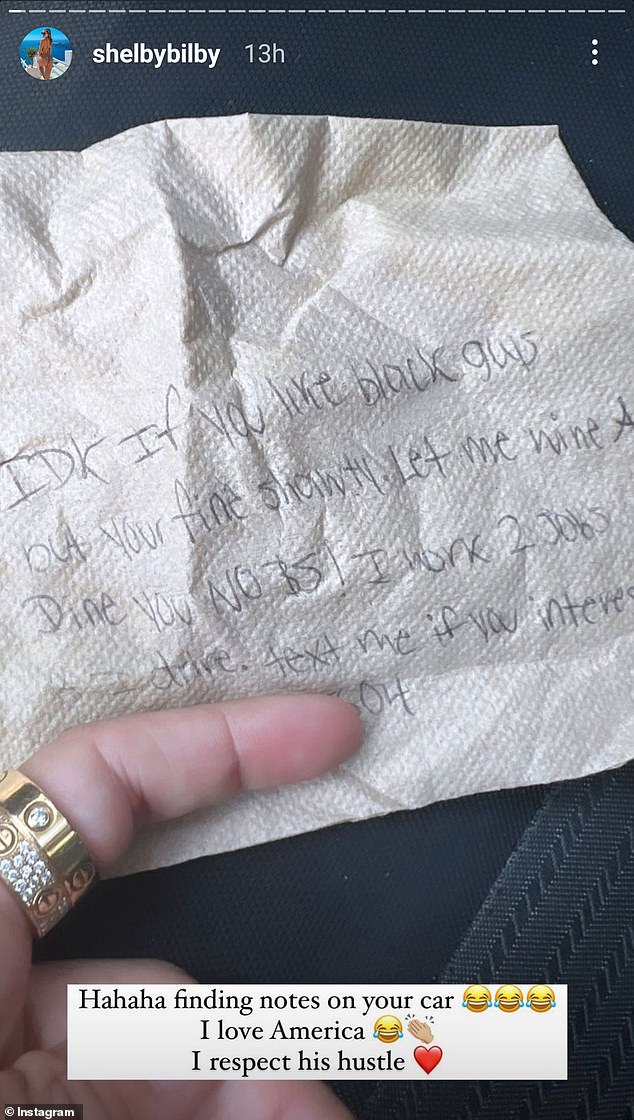 shelbybilby 13h
IDK If you like black guys
but your fine shawty. Let me wine &
Dine you NO BS! I work 2 Jobs
drive. text me if you interes
604
Hahaha finding notes on your car 😂😂😂
I love America 😂👏🏼
I respect his hustle ❤️
© Instagram